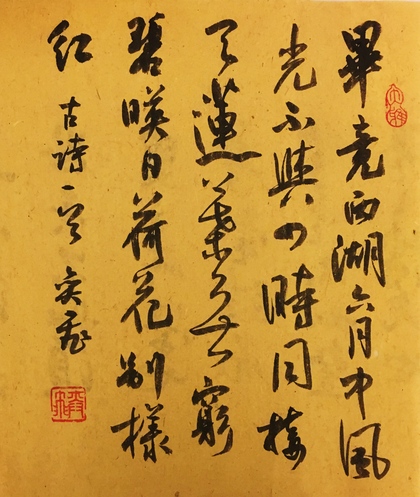 畢竟西湖六月中風
光不與四時同接
天蓮葉無窮
碧映日荷花别樣
红 古詩一首